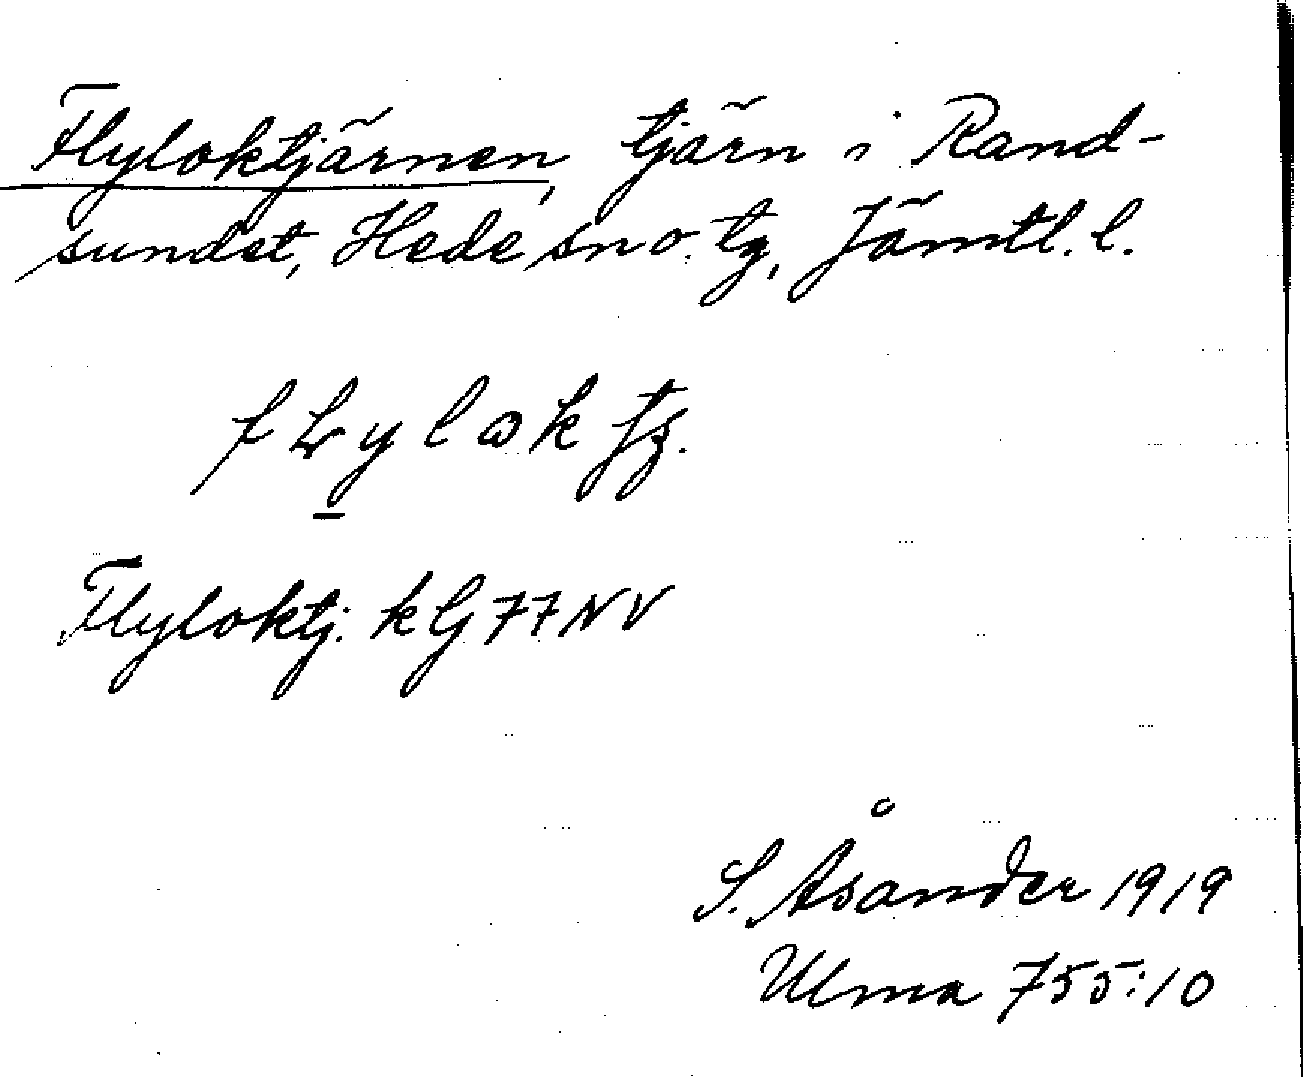 Flyloktjärnen, tjärn i Rand-
sundet, Hede sn o. tg, Jämtl. l.
Flyloktj. k G 77 NV
S. Åsander 1919
Ulma 755:10